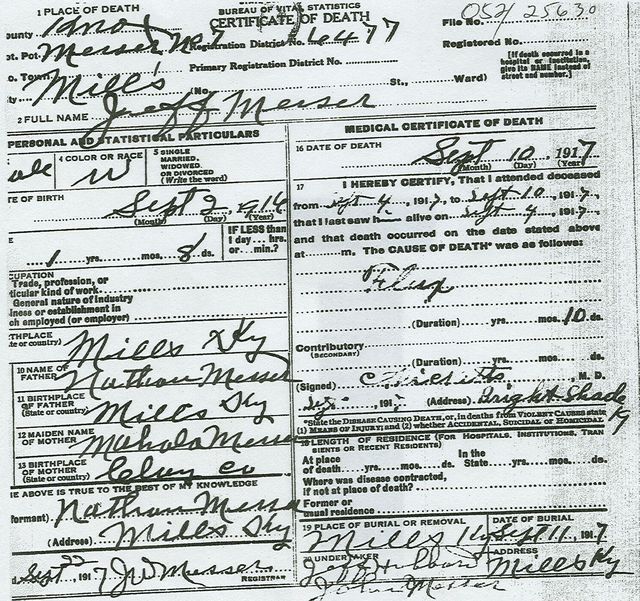 1 PLACE OF DEATH
BUREAU OF VITAL STATISTICS
CERTIFICATE OF DEATH
File No. 25630
ounty Knox
ot. Pot. Messer No 7 Registration District No. 6477
Registered No.
o. Town Primary Registration District No.
[If death occurred in a hospital or institution, give its NAME instead of street and number.]
ty Mills (No. St., Ward)
2 FULL NAME Jeff Messer
PERSONAL AND STATISTICAL PARTICULARS
ale
4 COLOR OR RACE W
5 SINGLE
MARRIED,
WIDOWED
OR DIVORCED
(Write the word)
TE OF BIRTH
Sept 2, 1916
(Month) (Day) (Year)
E
1 yrs. mos. 8 ds.
IF LESS than
1 day... hrs.
or... min.?
CUPATION
Trade, profession, or
ticular kind of work
General nature of industry
iness or establishment in
ch employed (or employer)
THPLACE
te or country) Mills Ky
10 NAME OF
FATHER Nathan Messer
11 BIRTHPLACE
OF FATHER
(State or country) Mills Ky
12 MAIDEN NAME
OF MOTHER Mahala Messer
13 BIRTHPLACE
OF MOTHER
(State or country) Clay Co
E ABOVE IS TRUE TO THE BEST OF MY KNOWLEDGE
formant) Nathan Messer
(Address) Mills Ky
Sept 22, 1917 JW Messer
REGISTRAR
MEDICAL CERTIFICATE OF DEATH
16 DATE OF DEATH
Sept 10, 1917
(Month) (Day) (Year)
17 I HEREBY CERTIFY, That I attended deceased
from Sept 4, 1917, to Sept 10, 1917,
that I last saw h alive on Sept 9, 1917,
and that death occurred on the date stated above
at m. The CAUSE OF DEATH* was as follows:
Flux
(Duration) yrs. mos. 10 ds.
Contributory
(SECONDARY)
(Duration) yrs. mos. ds.
(Signed) , M. D.
, 191 (Address) Bright Shade
Ky
*State the DISEASE CAUSING DEATH, or, in deaths from VIOLENT CAUSES state
(1) MEANS OF INJURY; and (2) whether ACCIDENTAL, SUICIDAL or HOMICIDAL
18 LENGTH OF RESIDENCE (FOR HOSPITALS, INSTITUTIONS, TRAN
SIENTS OR RECENT RESIDENTS)
At place In the
of death yrs. mos. ds. State yrs. mos. ds.
Where was disease contracted,
if not at place of death?
Former or
usual residence
19 PLACE OF BURIAL OR REMOVAL
Mills Ky
DATE OF BURIAL
Sept 11, 1917
20 UNDERTAKER
Hubbard
John Messer
ADDRESS
Mills Ky